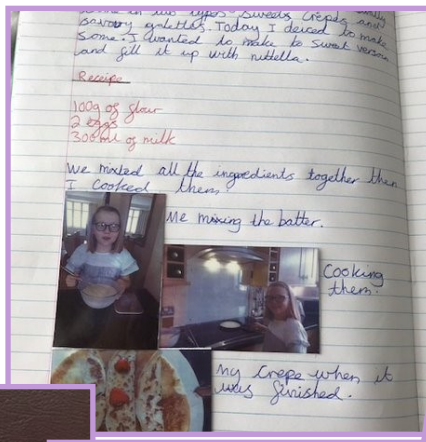 in two types. Sweets crepes and
savoury galettas. Today I deiced to make
some. I wanted to make to sweat verson
and fill it up with nuttella.
Receipe
100g of flour
2 eggs
300ml of milk
We mixted all the ingredients together then
I cooked them.
Me mixing the batter.
Cooking
them.
My crepe when it
was finished.